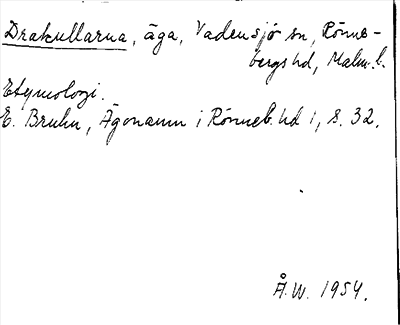 Drakullarna, äga, Vadensjö sn, Rönne-
bergs hd, Malm. l.
Etymologi.
E. Bruhn, Ägonamn i Rönneb. hd 1, s. 32.
Å.W. 1954.